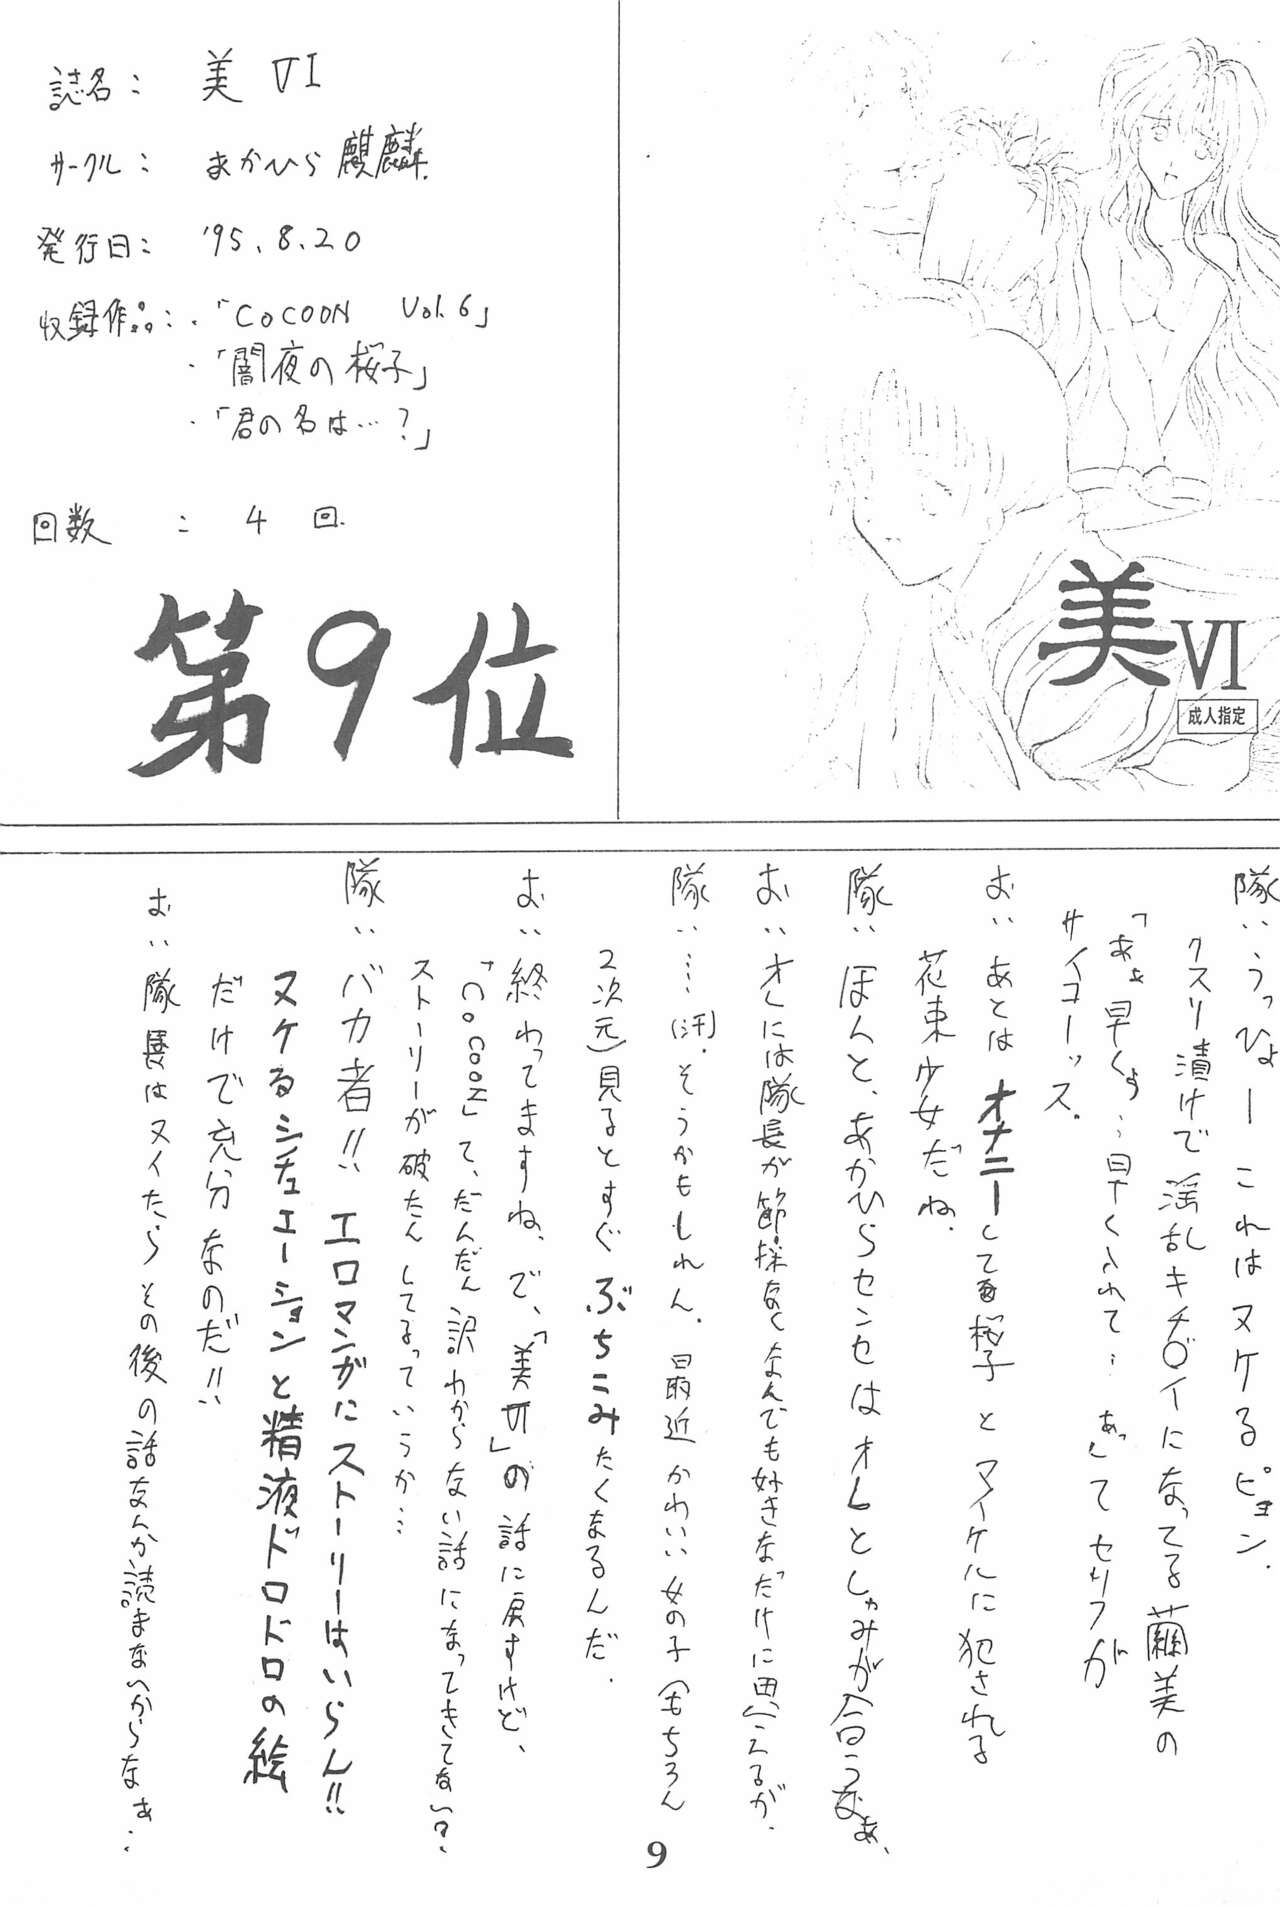 誌名： 美 VI
サークル： あかひら麒麟
発行日： '95.8.20
収録作品：・「COCOON Vol.6」
・「闇夜の桜子」
・「君の名は…？」
回数 ： 4 回
第9位
美VI
成人指定
隊：うっひょー これはヌケるピョン．
クスリ漬けで淫乱キチ〇イになってる繭美の
「あぁ早くぅ…早く入れて…あっ」てセリフが
サイコーッス．
お：あとはオナニーしてる桜子とマイケルに犯される
花束少女だね．
隊：ほんと、あかひらセンセはオレとしゅみが合うなぁ、
お：オレには隊長が節操なくなんでも好きなだけに思えるが．
隊：…（汗）．そうかもしれん．最近かわいい女の子（もちろん
2次元）見るとすぐぶちこみたくなるんだ．
お：終わってますね、で、「美VI」の話に戻すけど、
「COCOON」て、だんだん訳わからない話になってきてない？
ストーリーが破たんしてるっていうか…
隊：バカ者!! エロマンガにストーリーはいらん!!
ヌケるシチュエーションと精液ドロドロの絵
だけで充分なのだ!!
お：隊長はヌイたらその後の話なんか読まないからなぁ…
9